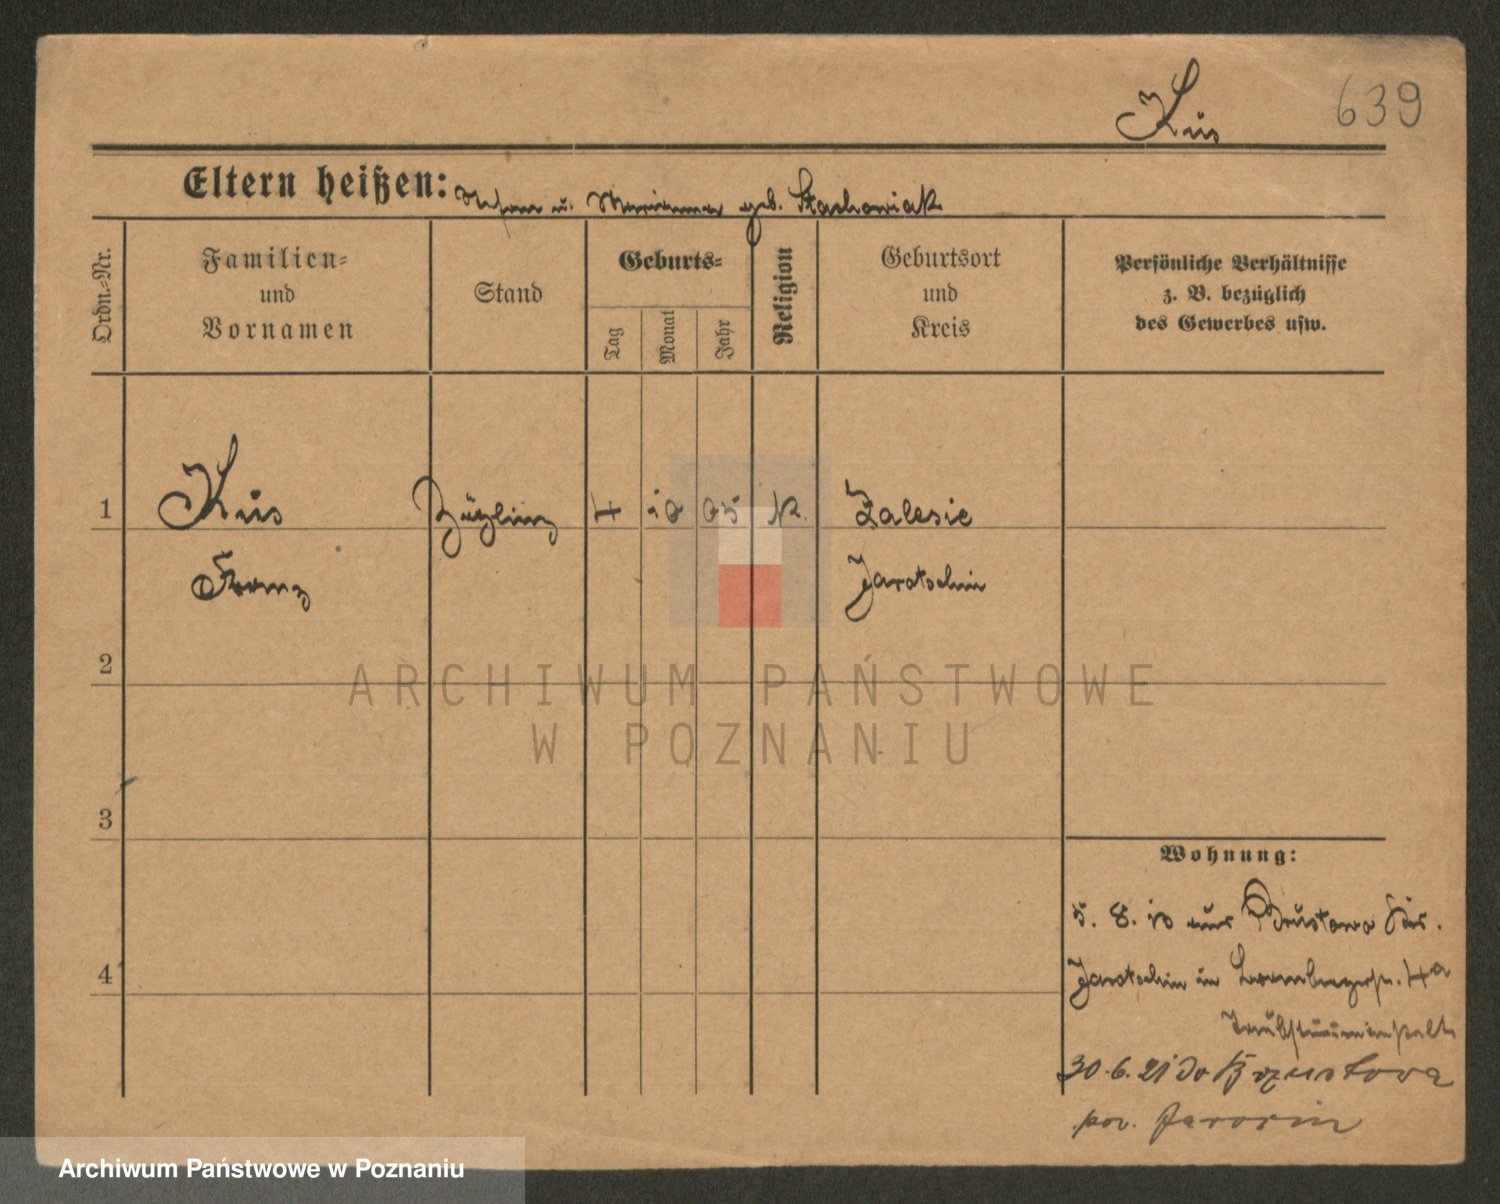 Kus 639
Eltern heißen: Stefan u. Marianna geb. Stachowiak
Ordn.-Nr.
Familien-
und
Vornamen
Stand
Geburts-
Tag
Monat
Jahr
Religion
Geburtsort
und
Kreis
Persönliche Verhältnisse
z. B. bezüglich
des Gewerbes usw.
1 Kus Zögling 4 10 05 K. Zalesie
Franz Jarotschin
2
3
4
ARCHIWUM PAŃSTWOWE
W POZNANIU
Wohnung:
5. 8. 10 aus Brustowa Krs.
Jarotschin in 4a
Taubstummenanstalt
30.6.21 do Brzustowa
pow. Jarocin
Archiwum Państwowe w Poznaniu